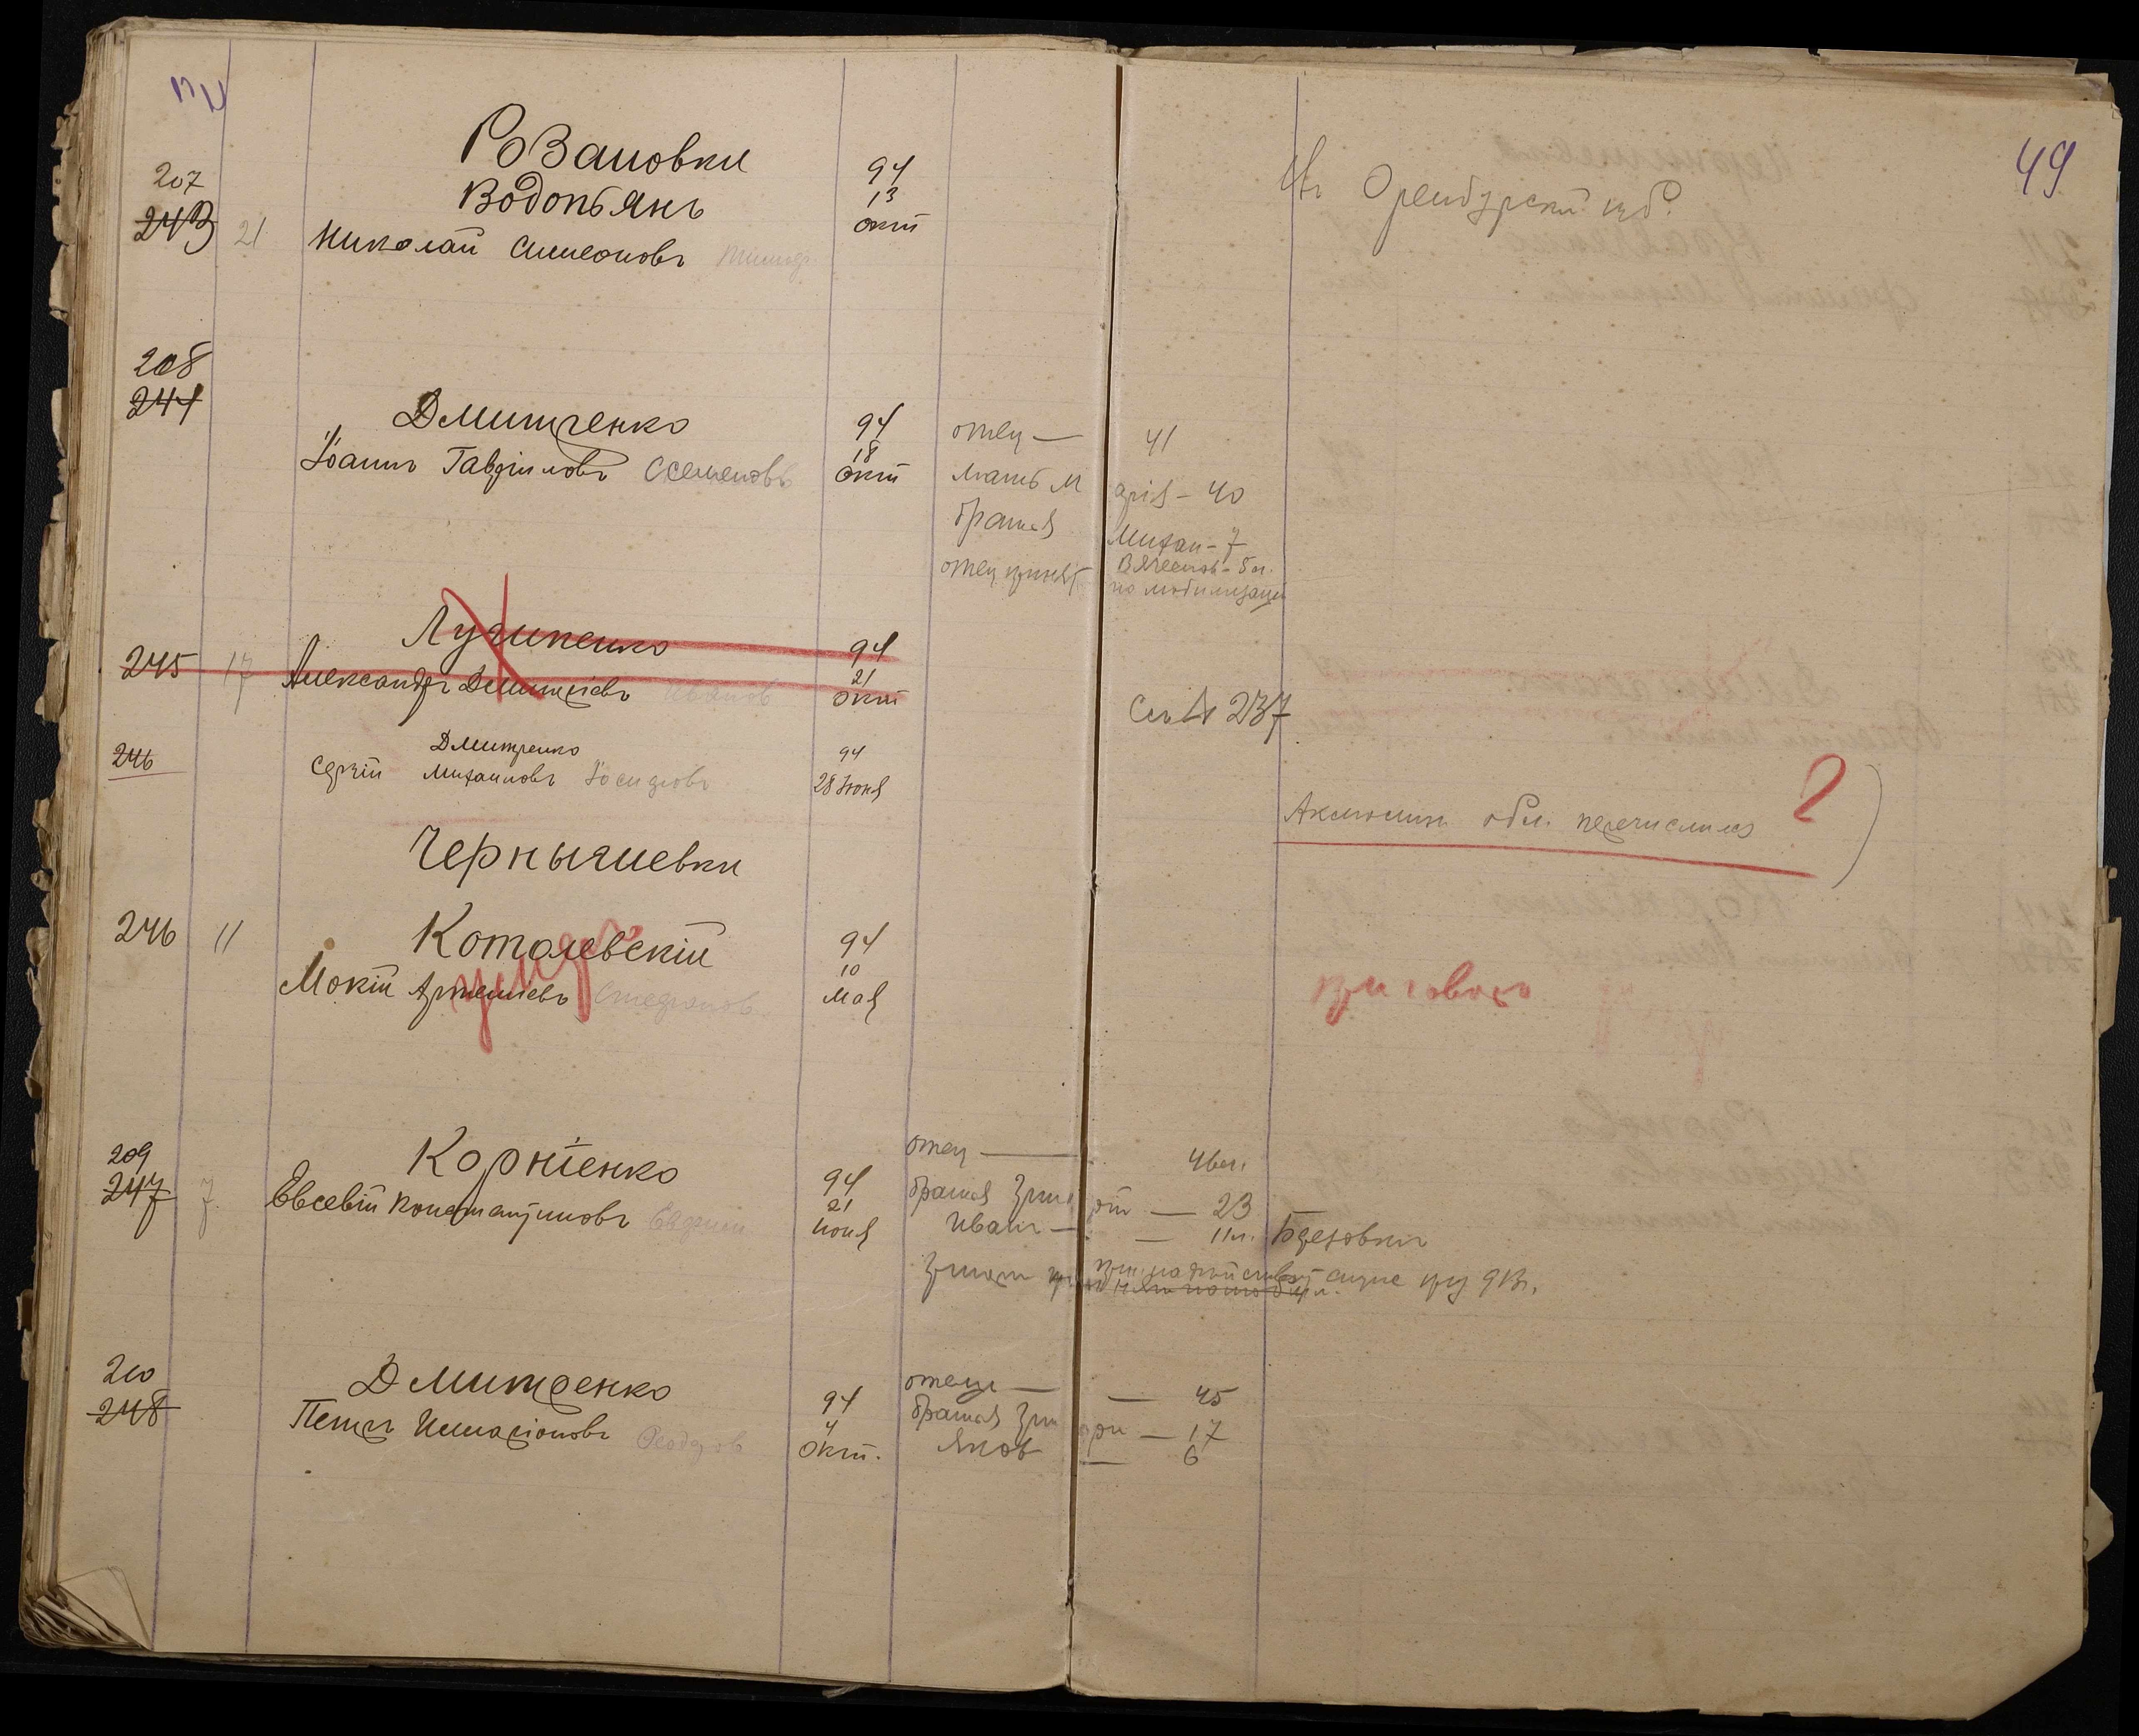 49
Розановки
207
243 21
Водопьянъ
Николай Симеоновъ
94
13
окт
Въ Оренбургской губ.
208
244
Дмитренко
Іоаннъ Гавріиловъ Семеновъ
94
18
окт
отец — 41
мать Марія - 40
братья Михаи - 7
Вячеслов - 5 л.
отец принят по мобилизаціи
245 17
Лузипенко
Александръ Димитріевъ Иванов
94
21
окт
См № 237
246
Дмитренко
Сергій Михаиловъ Іосифовъ
94
28 Іюня
Акмолин. обл. перечислился ?
Чернышевки
246 11
Котолевскій
Мокій Артеміевъ Стефанов
умеръ
94
10
мая
приговоръ
209
247 7
Корніенко
Евсевій Константиновъ
94
21
Іюня
отец — 46 л.
братья Григорій — 23
Иванъ — 11 л. Березовки
210
248
Дмитренко
Петръ Иларіоновъ Феодоров
94
4
Окт.
отец — 45
братья Григори — 17
Яков — 6